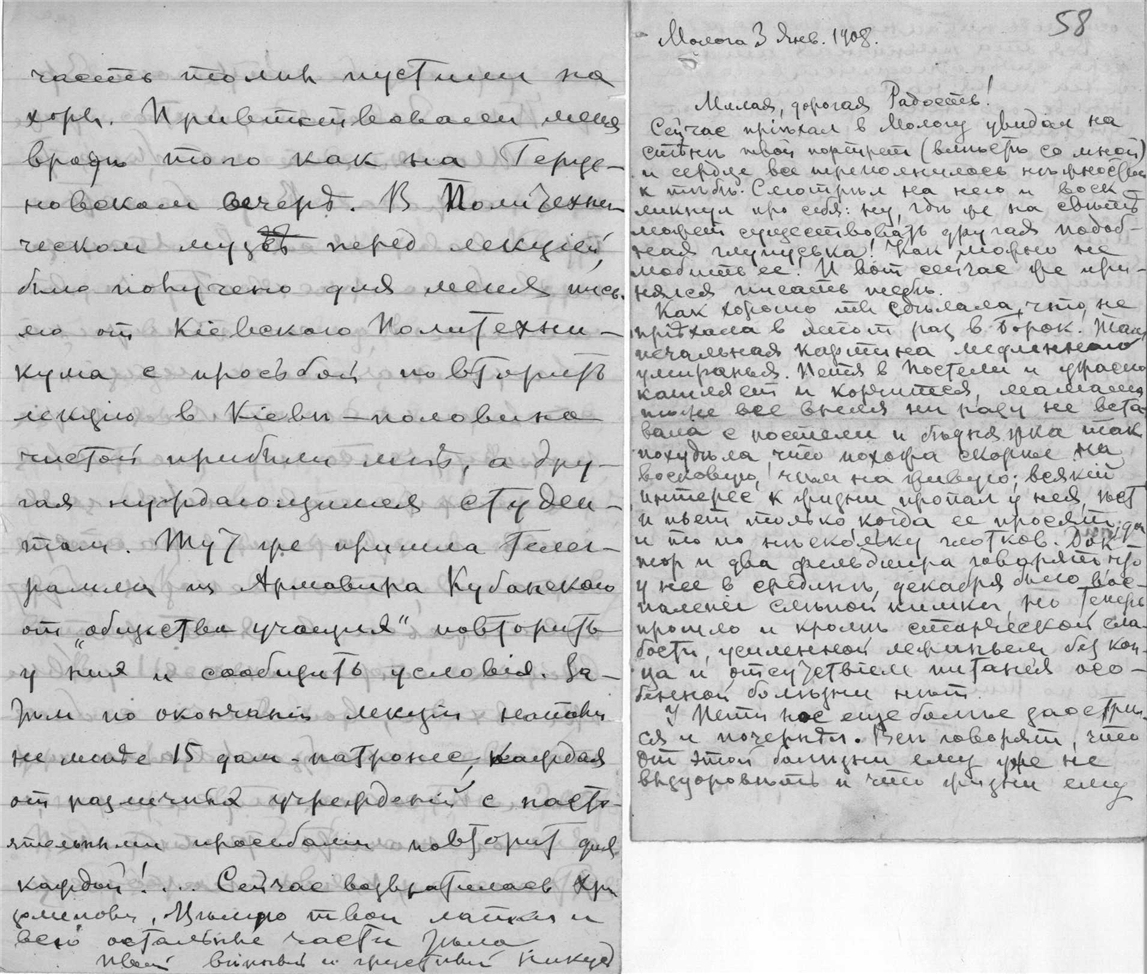 часть толпы пустили на
хоры. Привѣтствовали меня
вродѣ того как на Герце-
новском вечерѣ. В Политехни-
ческом музеѣ перед лекціей,
было получено для меня пись-
мо от Кіевскаго Политехни-
кума с просьбой повторить
лекцію в Кіевѣ – половина
чистой прибыли мнѣ, а дру-
гая нуждающимся студен-
там. Тут же пришла теле-
грамма из Армавира Кубанской
от "общества учащихся" повторить
у них и сообщить условія. За-
тѣм по окончаніи лекціи
не менѣе 15 дам-патронесс, каждая
от различных учрежденій с насто-
ятельными просьбами повторить для
каждой!... Сейчас возвратилась
Цѣлую твои лапки и
всѣ остальныя части тѣла
Твой вѣрный и грустный
58
Молога 3 Янв. 1908.
Милая, дорогая Радость!
Сейчас пріѣхал в Мологу увидал на
стѣнѣ твой портрет (вмѣстѣ со мной)
и сердце все переполнилось нѣжностью
к тебѣ. Смотрѣл на него и воск-
ликнул про себя: ну, гдѣ же на свѣтѣ
может существовать другая подоб-
ная глупуська! Как можно не
любить ее! И вот сейчас же при-
нялся писать тебѣ.
Как хорошо ты сдѣлала, что не
пріѣхала в этот раз в Борок. Там
печальная картина медленнаго
умиранья. Петя в постели и ужасно
кашляет и корчится, мамаша
тоже все время ни разу не вста-
вала с постели и бѣдняжка так
похудѣла, что похожа скорѣе на
восковую, чѣм на живую: всякій
интерес к жизни пропал у нея, ѣст
и пьет только когда ее просят
и то по нѣскольку глотков. Док-
тор и два фельдшера говорят что
у нее в срединѣ декабря было вос-
паленіе слѣпой кишки, но теперь
прошло и кромѣ старческой сла-
бости, усиленной лежаньем без кон-
ца и отсутствіем питанія осо-
бенной болѣзни нѣт.
У Пети нос еще болѣе заострил-
ся и почернѣл. Всѣ говорят, что
от этой болѣзни ему уже не
выздоровѣть и что жизни ему